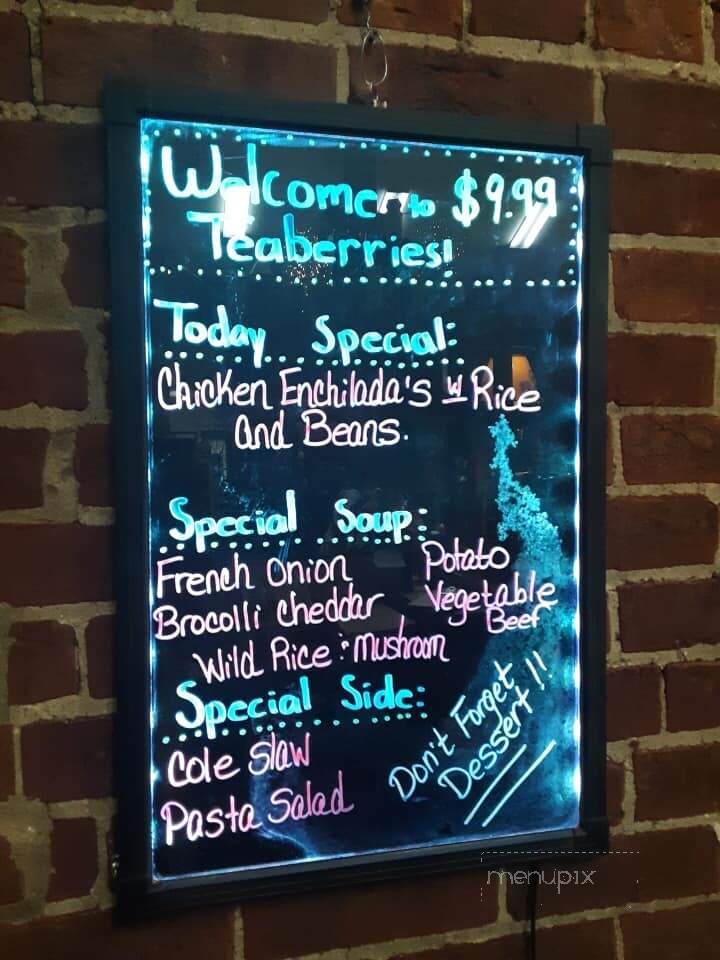 Welcome to $9.99
Teaberries!
Today Special:
Chicken Enchilada's w Rice
and Beans.
Special Soup:
French Onion
Brocolli cheddar
Wild Rice & Mushroom
Potato
Vegetable
Beef
Special Side:
Cole Slaw
Pasta Salad
Don't Forget
Dessert!!
menupix